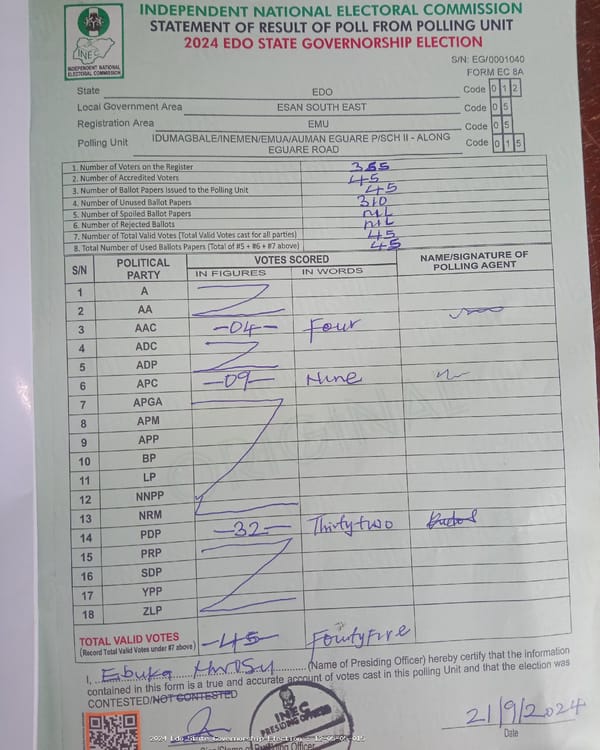 INDEPENDENT NATIONAL ELECTORAL COMMISSION
STATEMENT OF RESULT OF POLL FROM POLLING UNIT
2024 EDO STATE GOVERNORSHIP ELECTION
INEC
INDEPENDENT NATIONAL ELECTORAL COMMISSION
S/N: EG/0001040
FORM EC 8A
State EDO Code 0 1 2
Local Government Area ESAN SOUTH EAST Code 0 5
Registration Area EMU Code 0 5
Polling Unit IDUMAGBALE/INEMEN/EMUA/AUMAN EGUARE P/SCH II - ALONG EGUARE ROAD Code 0 1 5
1. Number of Voters on the Register 355
2. Number of Accredited Voters 45
3. Number of Ballot Papers Issued to the Polling Unit 45
4. Number of Unused Ballot Papers 310
5. Number of Spoiled Ballot Papers NIL
6. Number of Rejected Ballots NIL
7. Number of Total Valid Votes (Total Valid Votes cast for all parties) 45
8. Total Number of Used Ballots Papers (Total of #5 + #6 + #7 above) 45
S/N POLITICAL PARTY VOTES SCORED NAME/SIGNATURE OF POLLING AGENT
IN FIGURES IN WORDS
1 A
2 AA
3 AAC -04- Four
4 ADC
5 ADP
6 APC -09- Nine
7 APGA
8 APM
9 APP
10 BP
11 LP
12 NNPP
13 NRM
14 PDP -32- Thirty two
15 PRP
16 SDP
17 YPP
18 ZLP
TOTAL VALID VOTES -45- Fourty Five
(Record Total Valid Votes under #7 above)
I, Ebuka (Name of Presiding Officer) hereby certify that the information
contained in this form is a true and accurate account of votes cast in this polling Unit and that the election was
CONTESTED/NOT CONTESTED
INEC
PRESIDING OFFICER
21/9/2024
Date
2024 Edo State Governorship Election - 12-05-05-015